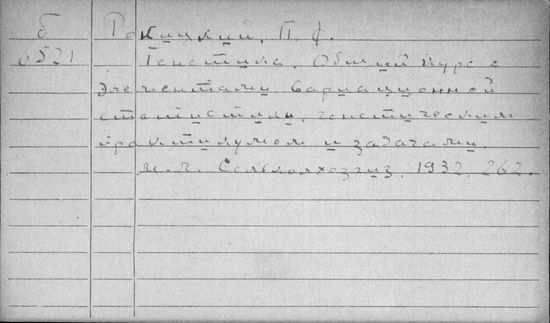 б Рокицкий, П. Ф.
0521 Генетика. Общий курс с
элементами вариационной
статистики, генетическим
практикумом и задачами.
М.Л. Сельколхозгиз, 1932, 262.